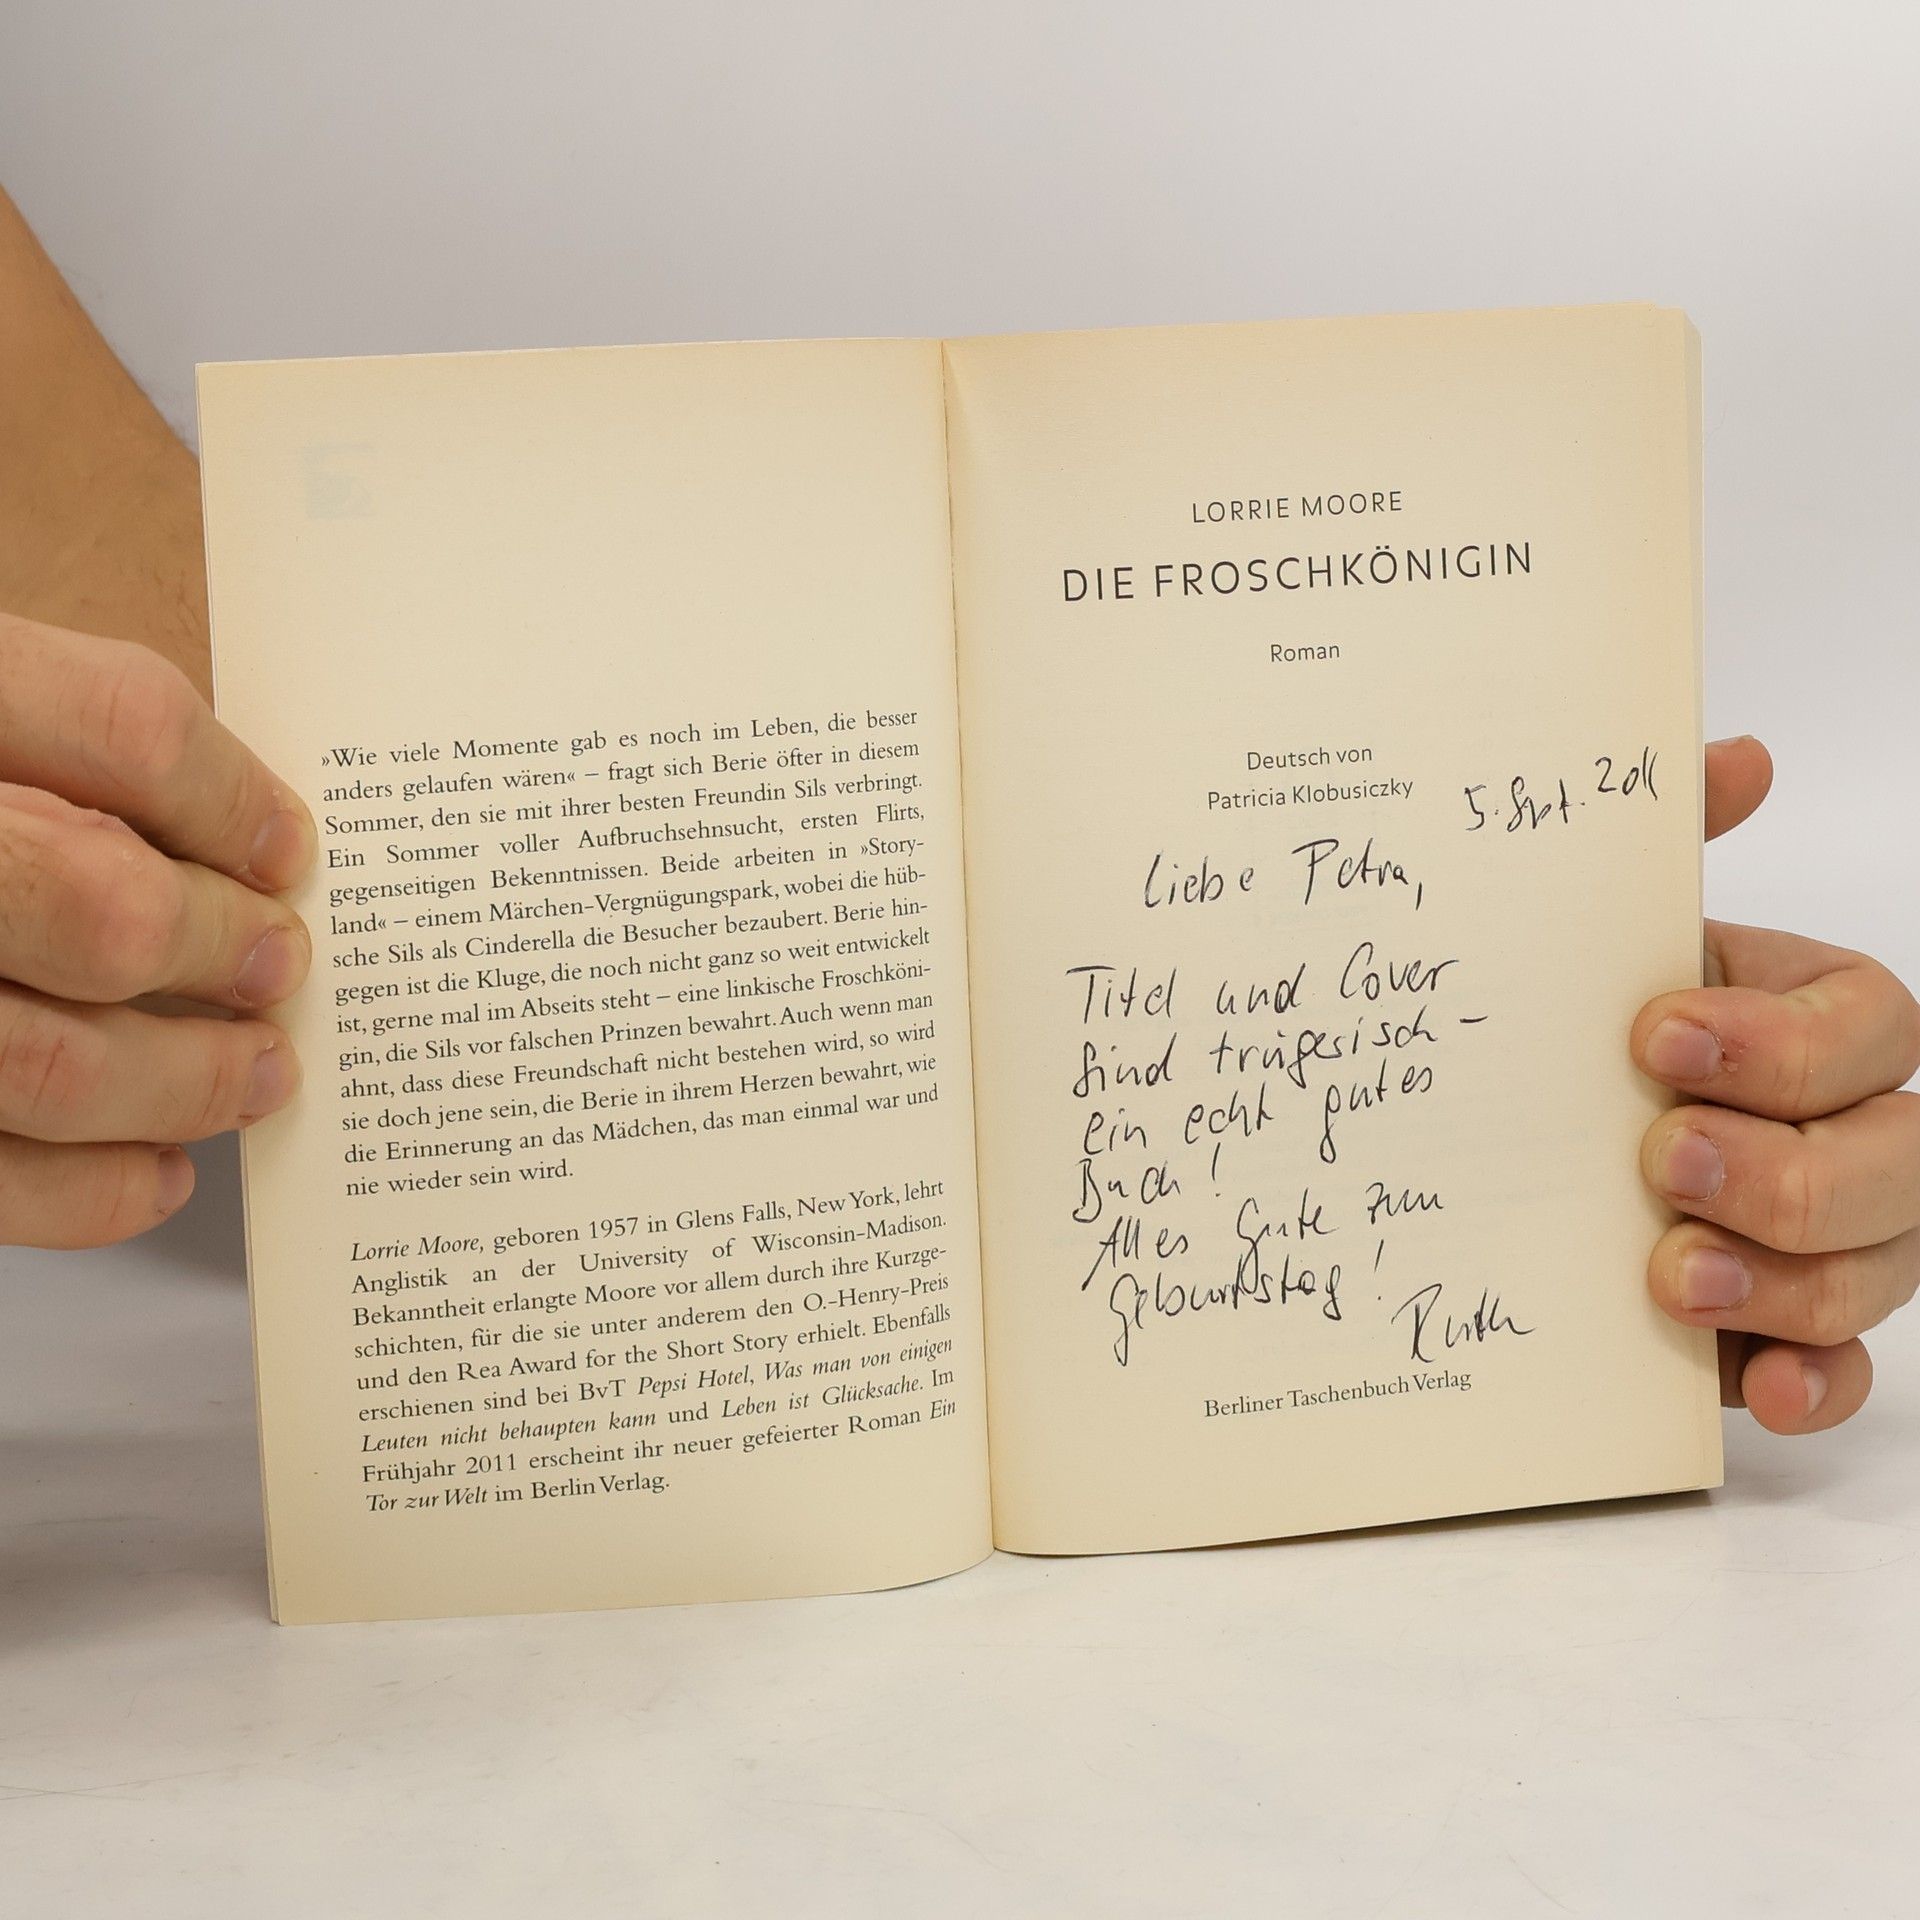 »Wie viele Momente gab es noch im Leben, die besser
anders gelaufen wären« – fragt sich Berie öfter in diesem
Sommer, den sie mit ihrer besten Freundin Sils verbringt.
Ein Sommer voller Aufbruchsehnsucht, ersten Flirts,
gegenseitigen Bekenntnissen. Beide arbeiten in »Story-
land« – einem Märchen-Vergnügungspark, wobei die hüb-
sche Sils als Cinderella die Besucher bezaubert. Berie hin-
gegen ist die Kluge, die noch nicht ganz so weit entwickelt
ist, gerne mal im Abseits steht – eine linkische Froschköni-
gin, die Sils vor falschen Prinzen bewahrt. Auch wenn man
ahnt, dass diese Freundschaft nicht bestehen wird, so wird
sie doch jene sein, die Berie in ihrem Herzen bewahrt, wie
die Erinnerung an das Mädchen, das man einmal war und
nie wieder sein wird.
Lorrie Moore, geboren 1957 in Glens Falls, New York, lehrt
Anglistik an der University of Wisconsin-Madison.
Bekanntheit erlangte Moore vor allem durch ihre Kurzge-
schichten, für die sie unter anderem den O.-Henry-Preis
und den Rea Award for the Short Story erhielt. Ebenfalls
erschienen sind bei BvT Pepsi Hotel, Was man von einigen
Leuten nicht behaupten kann und Leben ist Glücksache. Im
Frühjahr 2011 erscheint ihr neuer gefeierter Roman Ein
Tor zur Welt im Berlin Verlag.
LORRIE MOORE
DIE FROSCHKÖNIGIN
Roman
Deutsch von
Patricia Klobusiczky
5. Spt. 2011
Liebe Petra,
Titel und Cover
sind trügerisch –
ein echt gutes
Buch!
Alles Gute zum
Geburtstag!
Ruth
Berliner Taschenbuch Verlag